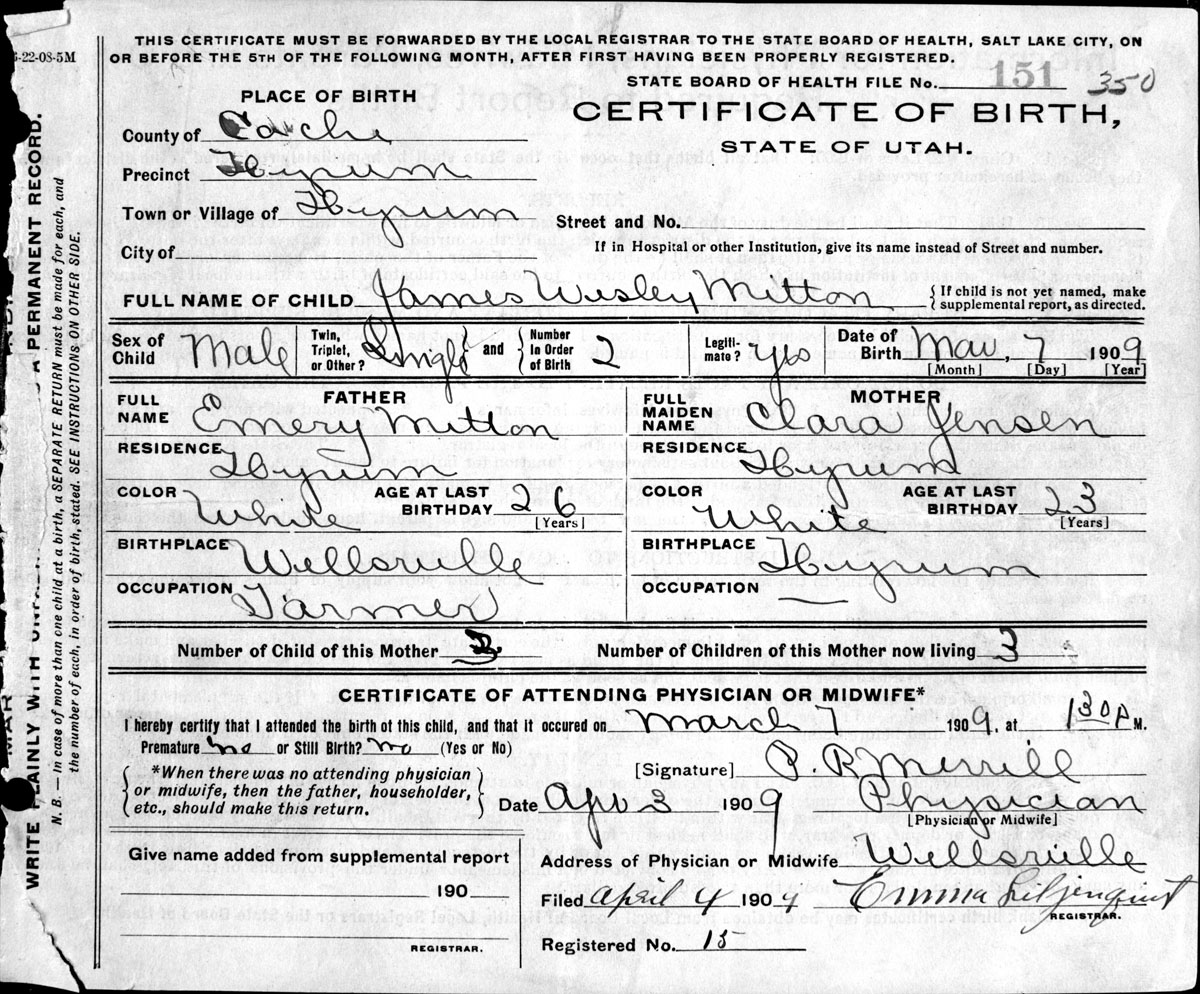 5-22-08-5M
THIS CERTIFICATE MUST BE FORWARDED BY THE LOCAL REGISTRAR TO THE STATE BOARD OF HEALTH, SALT LAKE CITY, ON
OR BEFORE THE 5TH OF THE FOLLOWING MONTH, AFTER FIRST HAVING BEEN PROPERLY REGISTERED.
STATE BOARD OF HEALTH FILE No. 151 350
PLACE OF BIRTH
CERTIFICATE OF BIRTH,
STATE OF UTAH.
County of Cache
Precinct Hyrum
Town or Village of Hyrum
Street and No.
City of
If in Hospital or other Institution, give its name instead of Street and number.
FULL NAME OF CHILD James Wesley Mitton { If child is not yet named, make supplemental report, as directed.
Sex of Child Male Twin, Triplet, or Other? Single and Number In Order of Birth 2 Legitimate? yes Date of Birth Mar, 7 1909
[Month] [Day] [Year]
FATHER
MOTHER
FULL NAME Emery Mitton
FULL MAIDEN NAME Clara Jensen
RESIDENCE Hyrum
RESIDENCE Hyrum
COLOR White AGE AT LAST BIRTHDAY 26 [Years]
COLOR White AGE AT LAST BIRTHDAY 23 [Years]
BIRTHPLACE Wellsville
BIRTHPLACE Hyrum
OCCUPATION Farmer
OCCUPATION —
Number of Child of this Mother 3 Number of Children of this Mother now living 3
CERTIFICATE OF ATTENDING PHYSICIAN OR MIDWIFE*
I hereby certify that I attended the birth of this child, and that it occured on March 7 1909, at 130 P M.
Premature no or Still Birth? no (Yes or No)
*When there was no attending physician
or midwife, then the father, householder,
etc., should make this return.
[Signature] P. R Merrill
Date Apr 3 1909 Physician
[Physician or Midwife]
Give name added from supplemental report
190
REGISTRAR.
Address of Physician or Midwife Wellsville
Filed April 4 1909 Emma Liljenquist
REGISTRAR.
Registered No. 15
WRITE PLAINLY WITH A PERMANENT RECORD.
N. B. — In case of more than one child at a birth, a SEPARATE RETURN must be made for each, and
the number of each, in order of birth, stated. SEE INSTRUCTIONS ON OTHER SIDE.
MAR